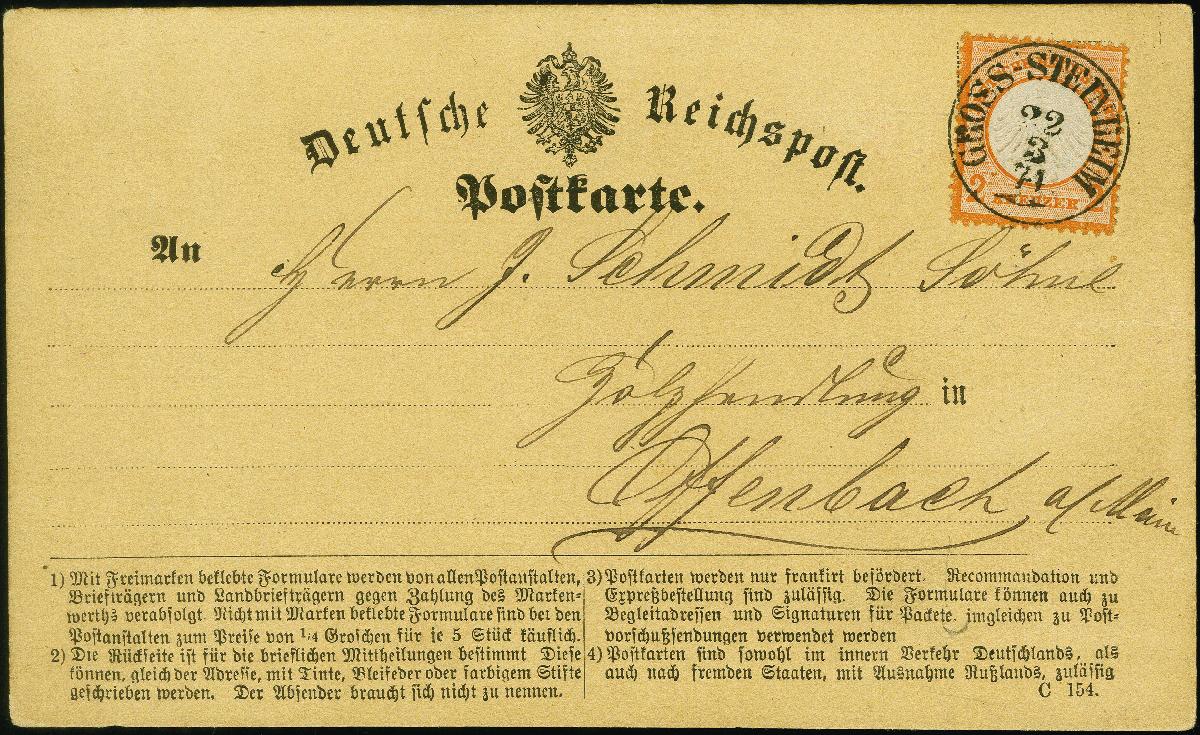 Deutsche Reichspost.
Postkarte.
GROSS-STEINHEIM
22
3
74
2 KREUZER 2
An Herrn J. Schmidt Söhne
Holzhandlung in
Offenbach a/Main
1) Mit Freimarken beklebte Formulare werden von allen Postanstalten,
Briefträgern und Landbriefträgern gegen Zahlung des Marken-
werths verabfolgt. Nicht mit Marken beklebte Formulare sind bei den
Postanstalten zum Preise von 1/4 Groschen für je 5 Stück käuflich.
2) Die Rückseite ist für die brieflichen Mittheilungen bestimmt Diese
können, gleich der Adresse, mit Tinte, Bleifeder oder farbigem Stifte
geschrieben werden. Der Absender braucht sich nicht zu nennen.
3) Postkarten werden nur frankirt befördert. Recommandation und
Expreßbestellung sind zulässig. Die Formulare können auch zu
Begleitadressen und Signaturen für Packete, imgleichen zu Post-
vorschußsendungen verwendet werden
4) Postkarten sind sowohl im innern Verkehr Deutschlands, als
auch nach fremden Staaten, mit Ausnahme Rußlands, zulässig
C 154.